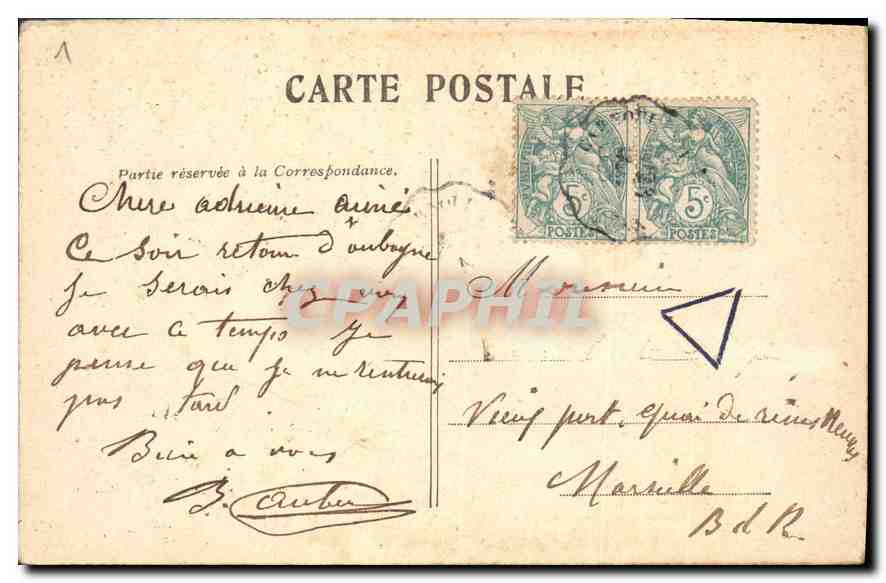 1
CARTE POSTALE
Partie réservée à la Correspondance.
Chere adrienne aimé
Ce soir retour d'aubagne
Je serais chez vous
avec ce temps je
pense que je ne rentrerai
pas tard
Bien a vous
B. Auber
5c
POSTES
5c
POSTES
Monsieur
Vieux port, quai de rive Neuve
Marseille
B d R
CPAPHIL